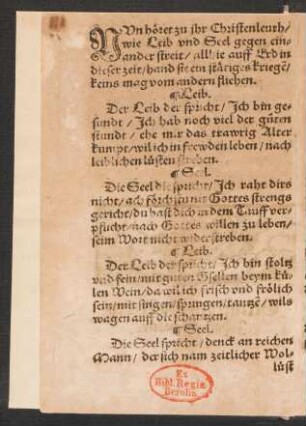 NUn höret zu jhr Christenleuth/
wie Leib vnd Seel gegen ein-
ander streit/ allhie auff Erd in
dieser zeit/ hand sie ein stätigs kriegē/
keins mag vom andern fliehen.
¶ Leib.
Der Leib der spricht/ Ich bin ge-
sundt/ Ich hab noch viel der guten
stundt/ ehe mir das trawrig Alter
kumpt/ wil ich in frewden leben/ nach
leiblichen lüsten streben.
¶ Seel.
Die Seel die spricht/ Ich raht dirs
nicht/ ach förcht nit Gottes strengs
gericht/ du hast dich in dem Tauff ver-
pflicht/ nach Gottes willen zu leben/
seim Wort nicht widerstreben.
¶ Leib.
Der Leib der spricht/ Ich bin stoltz
vnd fein/ mit guten Gsellen beym kü-
len Wein/ da wil ich frisch vnd frölich
sein/ mit singen/ springen/ tantzē/ wils
wagen auff die schantzen.
¶ Seel.
Die Seel spricht/ denck an reichen
Mann/ der sich nam zeitlicher Wol-
lüst
Ex
Bibl. Regia
Berolin.